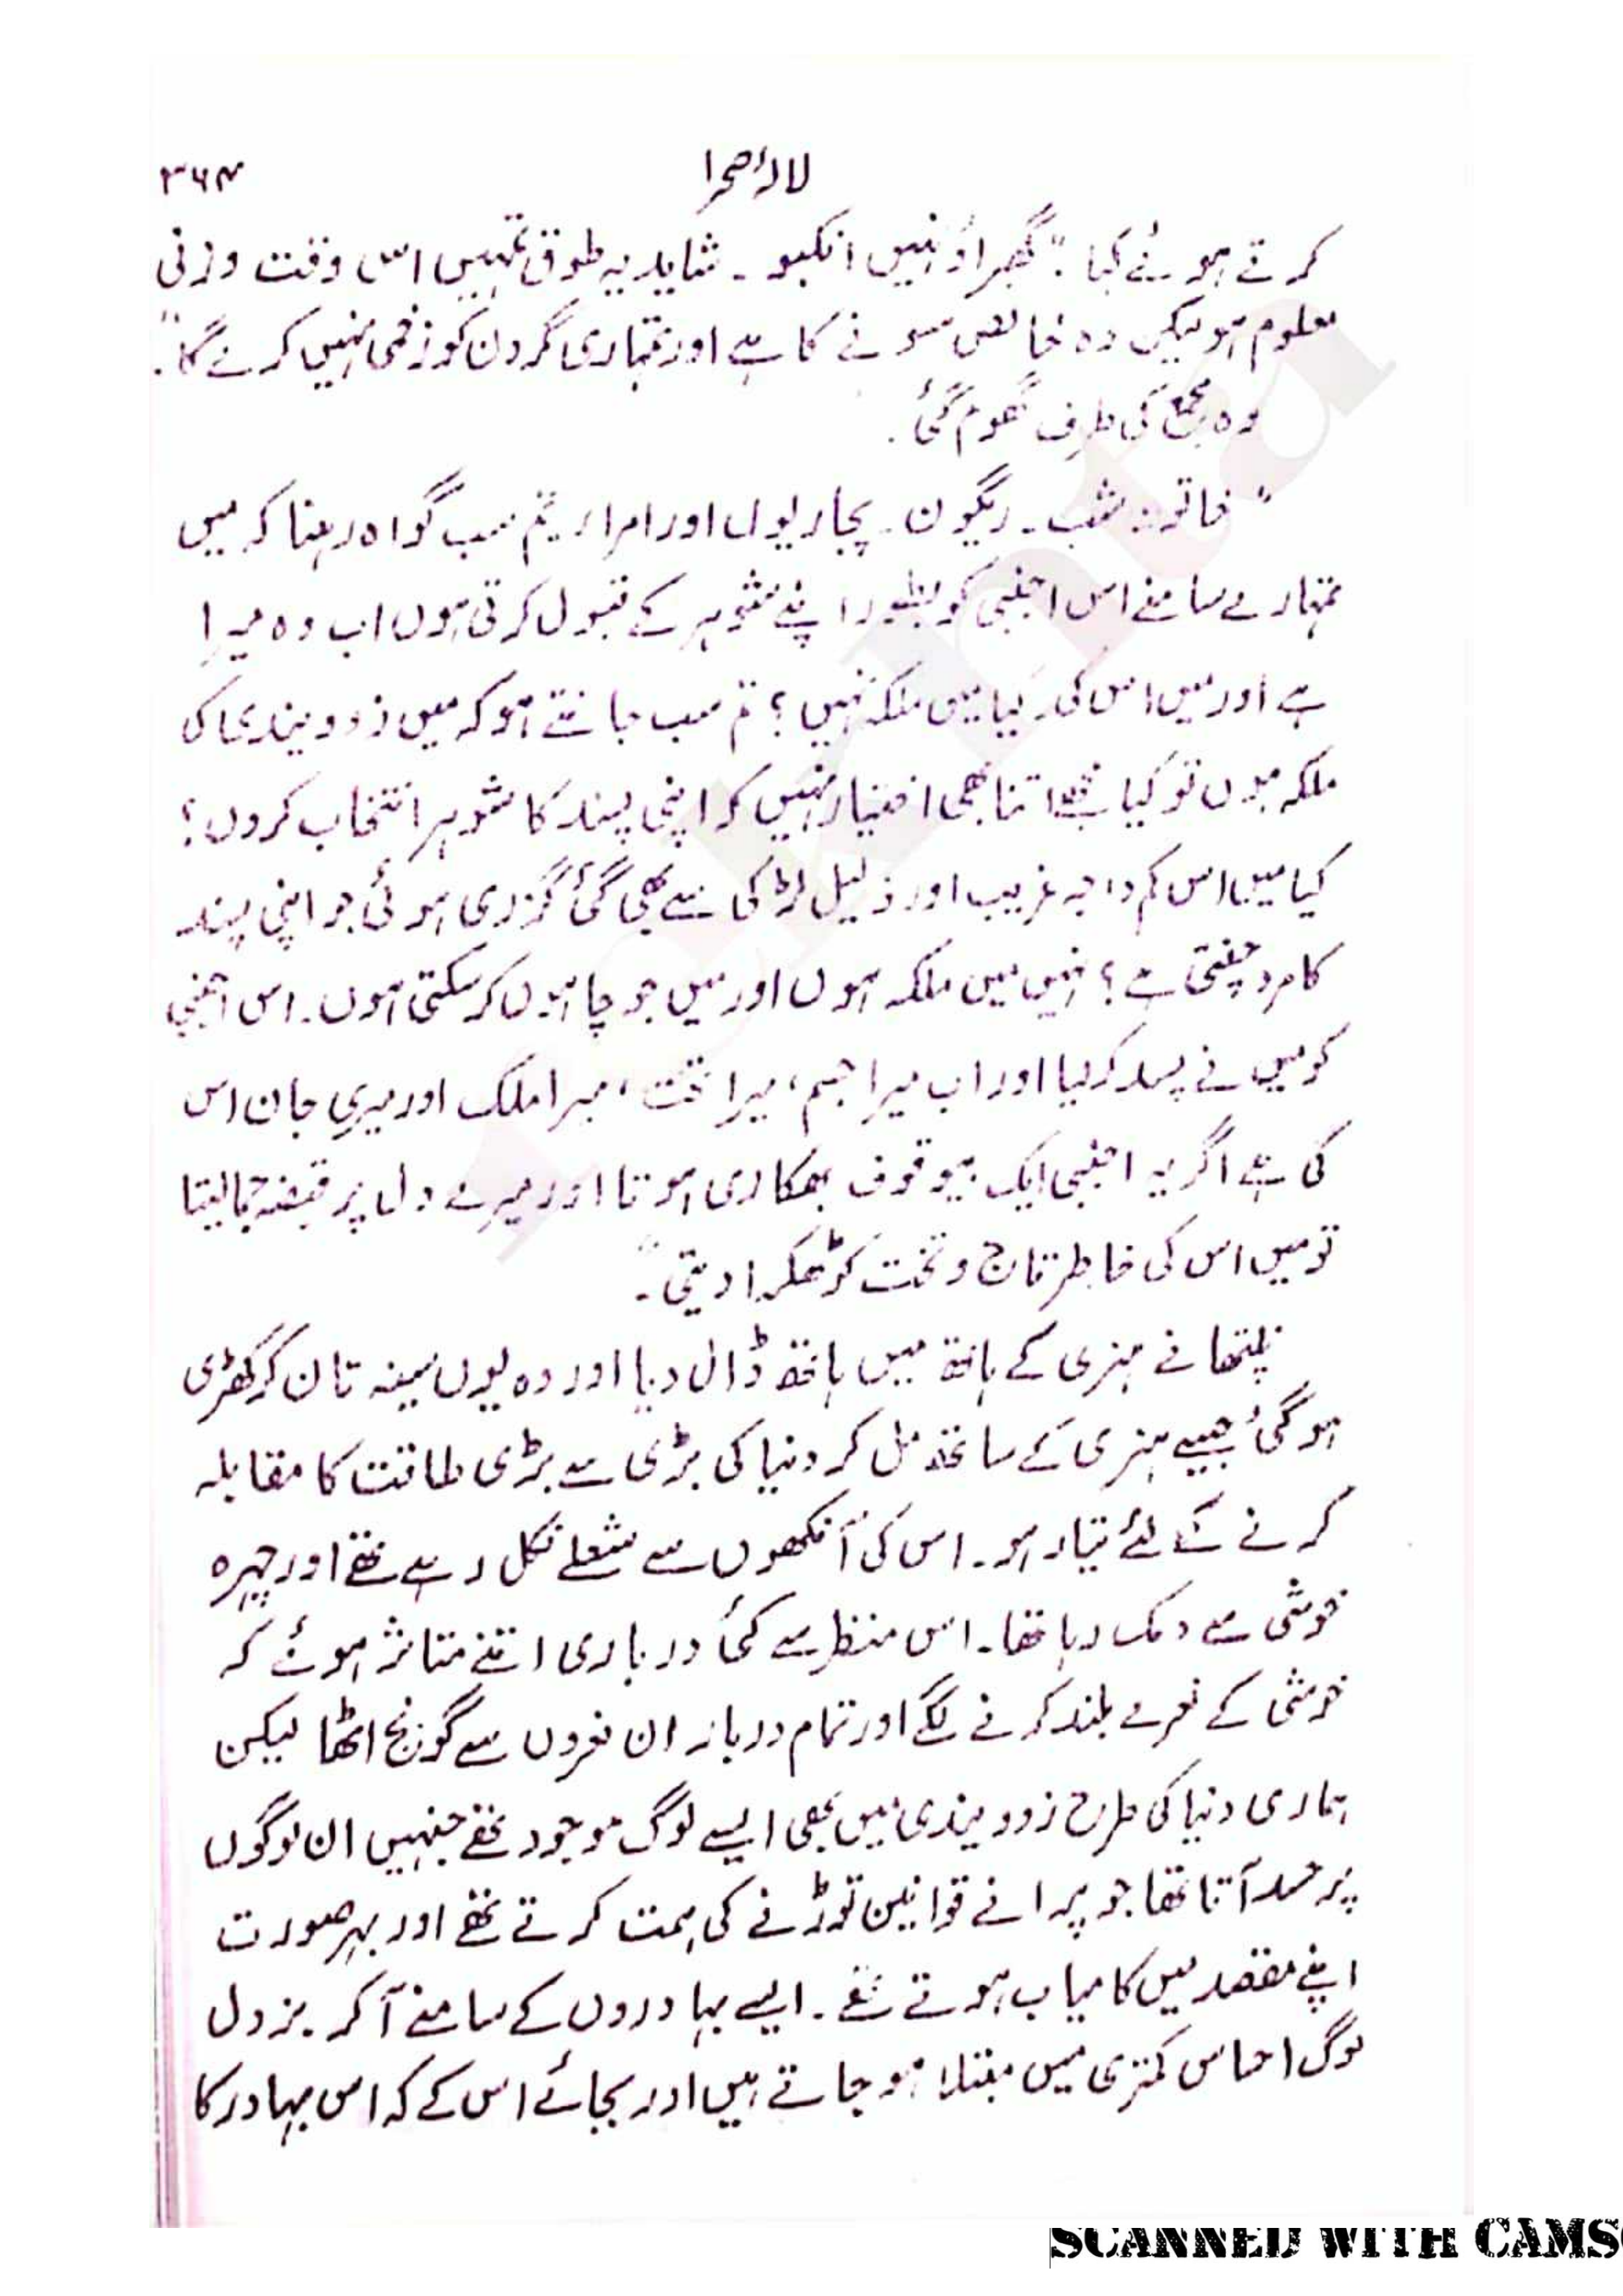 لالۂ صحرا ۳۶۴
کرتے ہوئے کہا: "گھبراؤ نہیں انکبو۔ شاید یہ طوق تمہیں اس وقت وزنی
معلوم ہو لیکن وہ خالص سونے کا ہے اور تمہاری گردن کو زخمی نہیں کرے گا۔"
وہ مجمع کی طرف گھوم گئی۔
"خاتونِ شب۔ ریگون۔ پجاریوں اور امراء۔ تم سب گواہ رہنا کہ میں
تمہارے سامنے اس اجنبی کو بطور اپنے شوہر کے قبول کرتی ہوں اب وہ میرا
ہے اور میں اس کی۔ کیا میں ملکہ نہیں؟ تم سب جانتے ہو کہ میں زوویندی کی
ملکہ ہوں تو کیا مجھے اتنا بھی اختیار نہیں کہ اپنی پسند کا شوہر انتخاب کروں؟
کیا میں اس کم درجہ غریب اور ذلیل لڑکی سے بھی گئی گزری ہوئی جو اپنی پسند
کا مرد چنتی ہے؟ نہیں میں ملکہ ہوں اور میں جو چاہوں کر سکتی ہوں۔ اس اجنبی
کو میں نے پسند کر لیا اور اب میرا جسم، میرا تخت، میرا ملک اور میری جان اس
کی ہے اگر یہ اجنبی ایک بیوقوف بھکاری ہوتا اور میرے دل پر قبضہ جما لیتا
تو میں اس کی خاطر تاج و تخت کو ٹھکرا دیتی۔"
نلپتھا نے ہنری کے ہاتھ میں ہاتھ ڈال دیا اور وہ یوں سینہ تان کر کھڑی
ہو گئی جیسے ہنری کے ساتھ مل کر دنیا کی بڑی سے بڑی طاقت کا مقابلہ
کرنے کے لئے تیار ہو۔ اس کی آنکھوں سے شعلے نکل رہے تھے اور چہرہ
خوشی سے دمک رہا تھا۔ اس منظر سے کئی درباری اتنے متاثر ہوئے کہ
خوشی کے نعرے بلند کرنے لگے اور تمام دربار ان نعروں سے گونج اٹھا لیکن
ہماری دنیا کی طرح زوویندی میں بھی ایسے لوگ موجود تھے جنہیں ان لوگوں
پر حسد آتا تھا جو پرانے قوانین توڑنے کی ہمت کرتے تھے اور بہر صورت
اپنے مقصد میں کامیاب ہوتے تھے۔ ایسے بہادروں کے سامنے آ کر بزدل
لوگ احساس کمتری میں مبتلا ہو جاتے ہیں اور بجائے اس کے کہ اس بہادر کا
SCANNED WITH CAMS